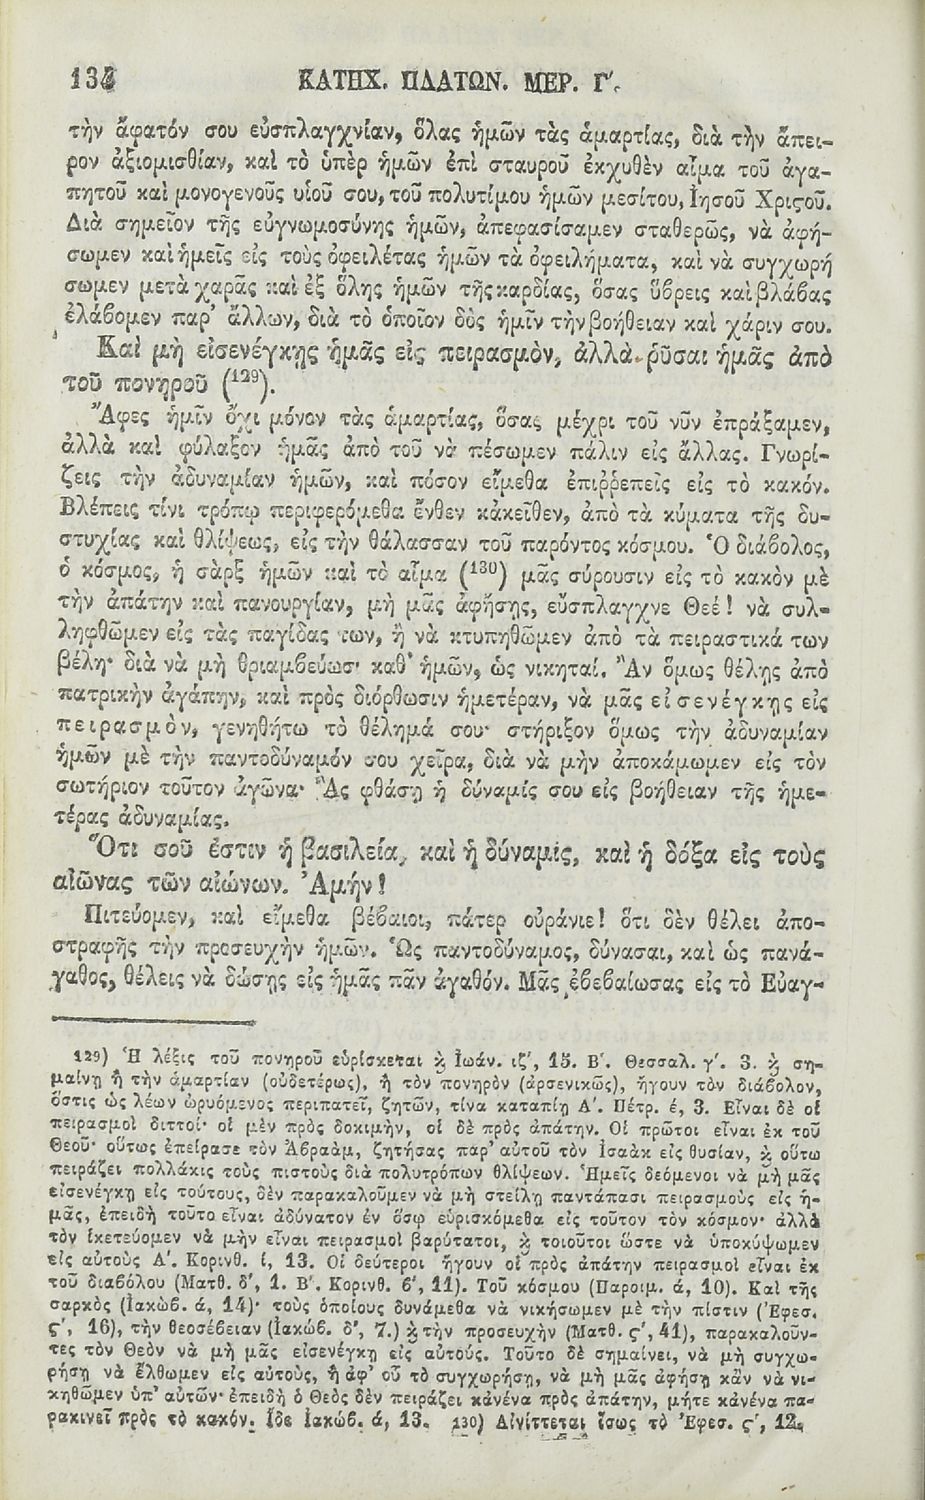 134 ΚΑΤΗΧ. ΠΛΑΤΩΝ. ΜΕΡ. Γ΄.
τὴν ἄφατόν σου εὐσπλαγχνίαν, ὅλας ἡμῶν τὰς ἁμαρτίας, διὰ τὴν ἄπει-
ρον ἀξιομισθίαν, καὶ τὸ ὑπὲρ ἡμῶν ἐπὶ σταυροῦ ἐκχυθὲν αἷμα τοῦ ἀγα-
πητοῦ καὶ μονογενοῦς υἱοῦ σου, τοῦ πολυτίμου ἡμῶν μεσίτου, Ἰησοῦ Χριϛοῦ.
Διὰ σημεῖον τῆς εὐγνωμοσύνης ἡμῶν, ἀπεφασίσαμεν σταθερῶς, νὰ ἀφή-
σωμεν καὶ ἡμεῖς εἰς τοὺς ὀφειλέτας ἡμῶν τὰ ὀφειλήματα, καὶ νὰ συγχωρή
σωμεν μετὰ χαρᾶς καὶ ἐξ ὅλης ἡμῶν τῆς καρδίας, ὅσας ὕβρεις καὶ βλάβας
ἐλάβομεν παρ' ἄλλων, διὰ τὸ ὁποῖον δὸς ἡμῖν τὴν βοήθειαν καὶ χάριν σου.
Καὶ μὴ εἰσενέγκῃς ἡμᾶς εἰς πειρασμὸν, ἀλλὰ ῥῦσαι ἡμᾶς ἀπὸ
τοῦ πονηροῦ (129).
Ἄφες ἡμῖν ὄχι μόνον τὰς ἁμαρτίας, ὅσας μέχρι τοῦ νῦν ἐπράξαμεν,
ἀλλὰ καὶ φύλαξον ἡμᾶς ἀπὸ τοῦ νὰ πέσωμεν πάλιν εἰς ἄλλας. Γνωρί-
ζεις τὴν ἀδυναμίαν ἡμῶν, καὶ πόσον εἴμεθα ἐπιῤῥεπεῖς εἰς τὸ κακόν.
Βλέπεις τίνι τρόπῳ περιφερόμεθα ἔνθεν κἀκεῖθεν, ἀπὸ τὰ κύματα τῆς δυ-
στυχίας καὶ θλίψεως, εἰς τὴν θάλασσαν τοῦ παρόντος κόσμου. Ὁ διάβολος,
ὁ κόσμος, ἡ σὰρξ ἡμῶν καὶ τὸ αἷμα (130) μᾶς σύρουσιν εἰς τὸ κακὸν μὲ
τὴν ἀπάτην καὶ πανουργίαν, μὴ μᾶς ἀφήσῃς, εὔσπλαγχνε Θεέ! νὰ συλ-
ληφθῶμεν εἰς τὰς παγίδας των, ἢ νὰ κτυπηθῶμεν ἀπὸ τὰ πειραστικά των
βέλη· διὰ νὰ μὴ θριαμβεύωσι καθ' ἡμῶν, ὡς νικηταί. Ἂν ὅμως θέλῃς ἀπὸ
πατρικὴν ἀγάπην, καὶ πρὸς διόρθωσιν ἡμετέραν, νὰ μᾶς εἰσενέγκῃς εἰς
πειρασμὸν, γενηθήτω τὸ θέλημά σου· στήριξον ὅμως τὴν ἀδυναμίαν
ἡμῶν μὲ τὴν παντοδύναμόν σου χεῖρα, διὰ νὰ μὴν ἀποκάμωμεν εἰς τὸν
σωτήριον τοῦτον ἀγῶνα· Ἂς φθάσῃ ἡ δύναμίς σου εἰς βοήθειαν τῆς ἡμε-
τέρας ἀδυναμίας.
Ὅτι σοῦ ἐστιν ἡ βασιλεία, καὶ ἡ δύναμις, καὶ ἡ δόξα εἰς τοὺς
αἰῶνας τῶν αἰώνων. Ἀμήν!
Πιτεύομεν, καὶ εἴμεθα βέβαιοι, πάτερ οὐράνιε! ὅτι δὲν θέλει ἀπο-
στραφῆς τὴν προσευχὴν ἡμῶν. Ὡς παντοδύναμος, δύνασαι, καὶ ὡς πανά-
γαθος, θέλεις νὰ δώσῃς εἰς ἡμᾶς πᾶν ἀγαθόν. Μᾶς ἐβεβαίωσας εἰς τὸ Εὐαγ-
129) Ἡ λέξις τοῦ πονηροῦ εὑρίσκεται ϗ Ἰωάν. ιζ', 15. Β'. Θεσσαλ. γ'. 3. ϗ ση-
μαίνῃ ἢ τὴν ἁμαρτίαν (οὐδετέρως), ἢ τὸν πονηρὸν (ἀρσενικῶς), ἤγουν τὸν διάβολον,
ὅστις ὡς λέων ὠρυόμενος περιπατεῖ, ζητῶν, τίνα καταπίῃ Α'. Πέτρ. έ, 3. Εἶναι δὲ οἱ
πειρασμοὶ διττοί· οἱ μὲν πρὸς δοκιμὴν, οἱ δὲ πρὸς ἀπάτην. Οἱ πρῶτοι εἶναι ἐκ τοῦ
Θεοῦ· οὕτως ἐπείρασε τὸν Ἀβραὰμ, ζητήσας παρ' αὐτοῦ τὸν Ἰσαὰκ εἰς θυσίαν, ϗ οὕτω
πειράζει πολλάκις τοὺς πιστοὺς διὰ πολυτρόπων θλίψεων. Ἡμεῖς δεόμενοι νὰ μὴ μᾶς
εἰσενέγκῃ εἰς τούτους, δὲν παρακαλοῦμεν νὰ μὴ στείλῃ παντάπασι πειρασμοὺς εἰς ἡ-
μᾶς, ἐπειδὴ τοῦτο εἶναι ἀδύνατον ἐν ὅσῳ εὑρισκόμεθα εἰς τοῦτον τὸν κόσμον· ἀλλὰ
τὸν ἱκετεύομεν νὰ μὴν εἶναι πειρασμοὶ βαρύτατοι, ϗ τοιοῦτοι ὥστε νὰ ὑποκύψωμεν
εἰς αὐτοὺς Α'. Κορινθ. ί, 13. Οἱ δεύτεροι ἤγουν οἱ πρὸς ἀπάτην πειρασμοὶ εἶναι ἐκ
τοῦ διαβόλου (Ματθ. δ', 1. Β'. Κορινθ. β', 11). Τοῦ κόσμου (Παροιμ. ά, 10). Καὶ τῆς
σαρκὸς (Ἰακώβ. ά, 14)· τοὺς ὁποίους δυνάμεθα νὰ νικήσωμεν μὲ τὴν πίστιν (Ἐφεσ.
ϛ', 16), τὴν θεοσέβειαν (Ἰακώβ. δ', 7.) ϗ τὴν προσευχὴν (Ματθ. ϛ', 41), παρακαλοῦν-
τες τὸν Θεὸν νὰ μὴ μᾶς εἰσενέγκῃ εἰς αὐτούς. Τοῦτο δὲ σημαίνει, νὰ μὴ συγχω-
ρήσῃ νὰ ἔλθωμεν εἰς αὐτοὺς, ἢ ἀφ' οὗ τὸ συγχωρήσῃ, νὰ μὴ μᾶς ἀφήσῃ κἂν νὰ νι-
κηθῶμεν ὑπ' αὐτῶν· ἐπειδὴ ὁ Θεὸς δὲν πειράζει κἀνένα πρὸς ἀπάτην, μήτε κἀνένα πα-
ρακινεῖ πρὸς τὸ κακόν. Ἴδε Ἰακώβ. ά, 13. 130) Αἰνίττεται ἴσως τὸ Ἐφεσ. ϛ', 12.